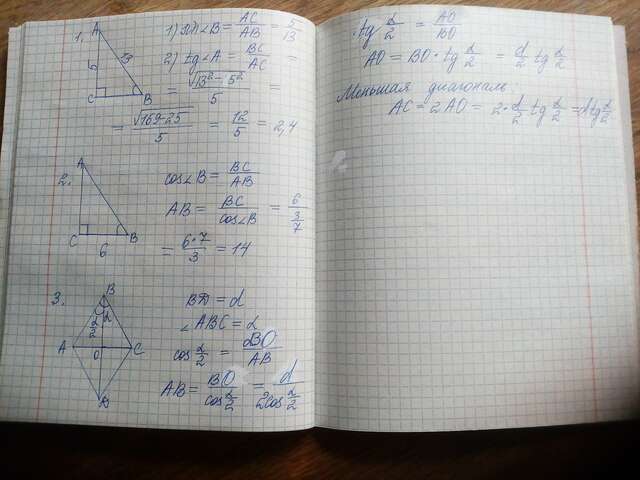 1. A 5 13 C B
1) sin∠B = AC/AB = 5/13
2) tg∠A = BC/AC =
= √(13² - 5²)/5 =
= √(169-25)/5 = 12/5 = 2,4
2. A C 6 B
cos∠B = BC/AB
AB = BC/cos∠B = 6/(3/7)
= 6·7/3 = 14
3. B α/2 α A O C D
BD = d
∠ABC = α
cos α/2 = BO/AB
AB = BO/cos α/2 = d/2cos α/2
tg α/2 = AO/BO
AO = BO · tg α/2 = d/2 tg α/2
Меньшая диагональ
AC = 2AO = 2 · d/2 tg α/2 = d tg α/2